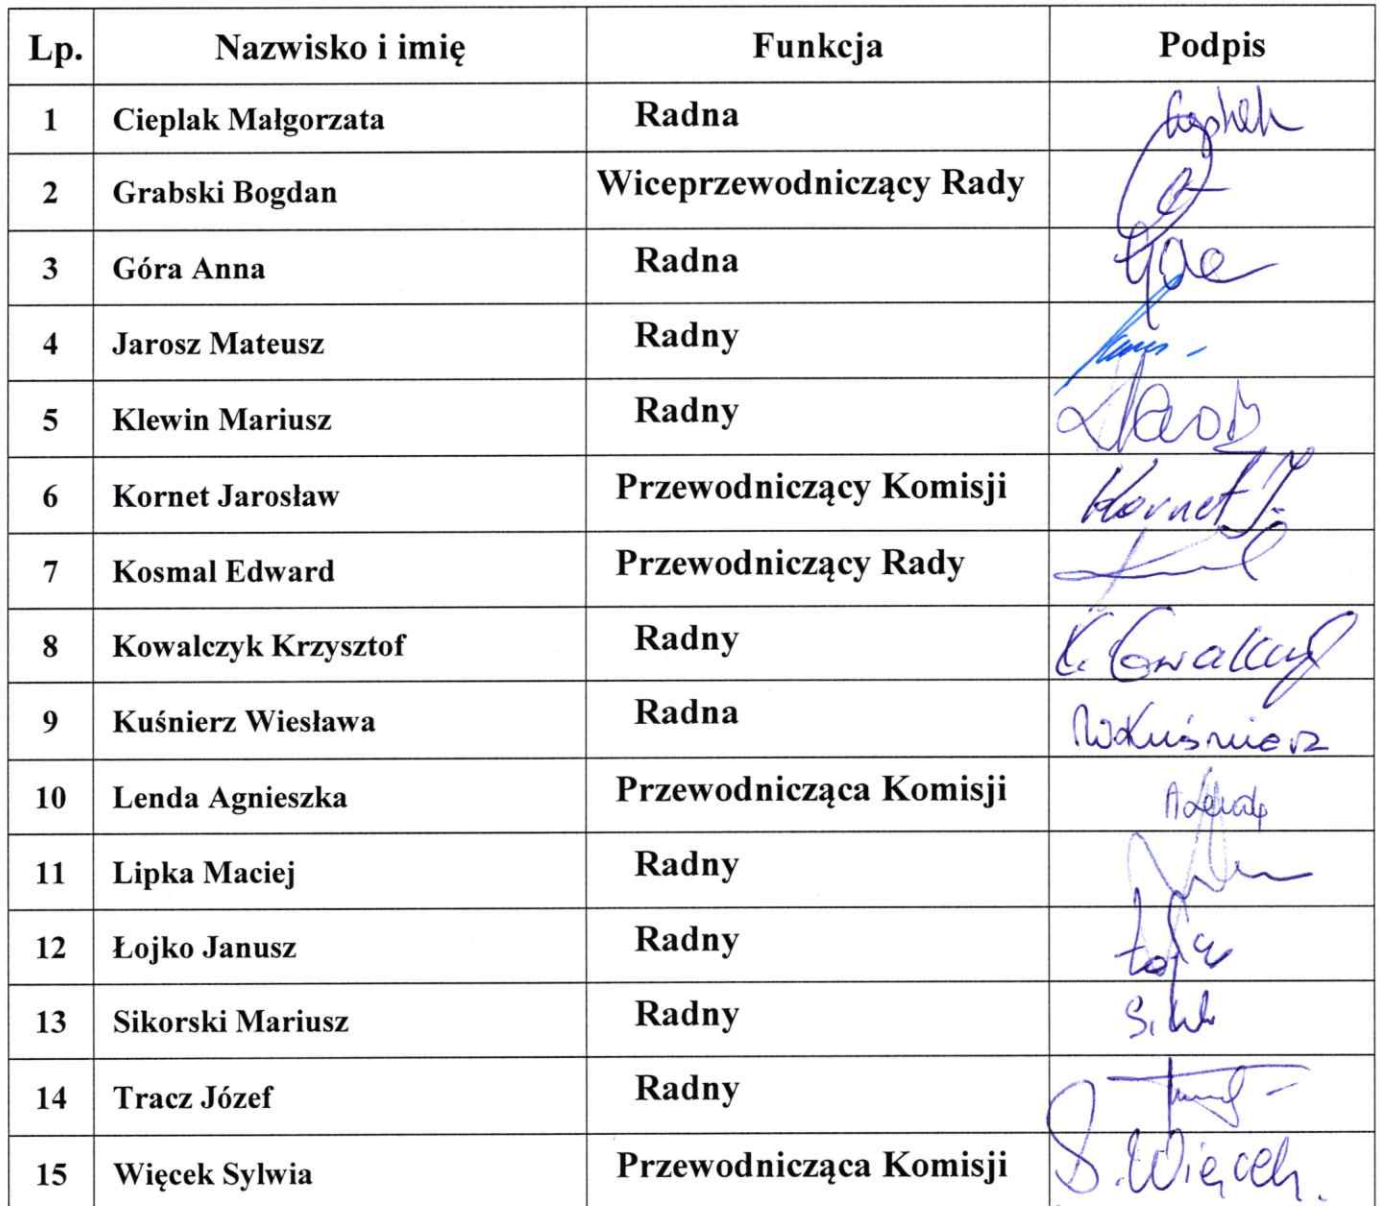 Lp. Nazwisko i imię Funkcja Podpis
1 Cieplak Małgorzata Radna
2 Grabski Bogdan Wiceprzewodniczący Rady
3 Góra Anna Radna
4 Jarosz Mateusz Radny
5 Klewin Mariusz Radny
6 Kornet Jarosław Przewodniczący Komisji Kornet J.
7 Kosmal Edward Przewodniczący Rady
8 Kowalczyk Krzysztof Radny
9 Kuśnierz Wiesława Radna WKuśnierz
10 Lenda Agnieszka Przewodnicząca Komisji
11 Lipka Maciej Radny
12 Łojko Janusz Radny
13 Sikorski Mariusz Radny
14 Tracz Józef Radny
15 Więcek Sylwia Przewodnicząca Komisji S. Więcek